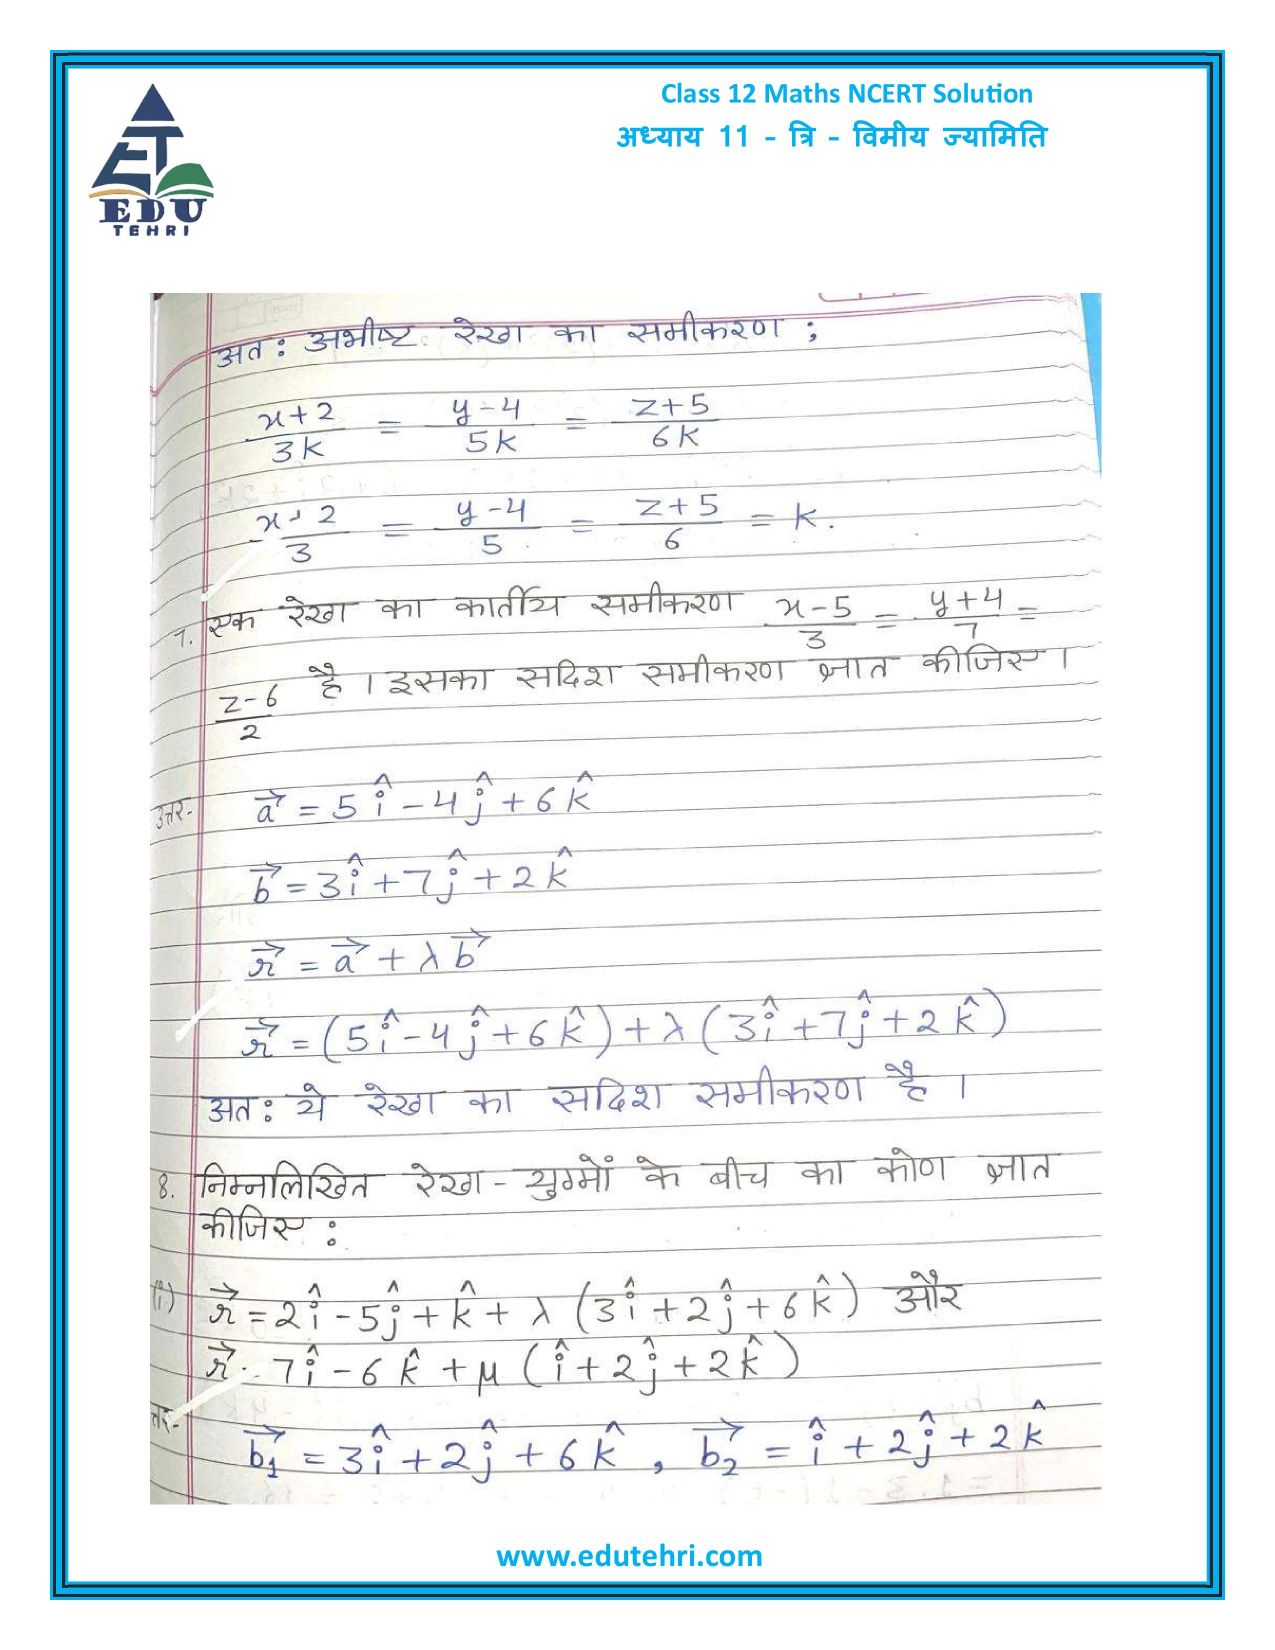 Class 12 Maths NCERT Solution
अध्याय 11 - त्रि - विमीय ज्यामिति
EDU
TEHRI
अत: अभीष्ट रेखा का समीकरण ;
x+2/3k = y-4/5k = z+5/6k
x+2/3 = y-4/5 = z+5/6 = k.
7. एक रेखा का कार्तीय समीकरण x-5/3 = y+4/7 =
z-6/2 है । इसका सदिश समीकरण ज्ञात कीजिए ।
उत्तर- a⃗ = 5î - 4ĵ + 6k̂
b⃗ = 3î + 7ĵ + 2k̂
r⃗ = a⃗ + λb⃗
r⃗ = (5î - 4ĵ + 6k̂) + λ(3î + 7ĵ + 2k̂)
अत: ये रेखा का सदिश समीकरण है ।
8. निम्नलिखित रेखा - युग्मों के बीच का कोण ज्ञात
कीजिए :
(i) r⃗ = 2î - 5ĵ + k̂ + λ (3î + 2ĵ + 6k̂) और
r⃗ = 7î - 6k̂ + μ (î + 2ĵ + 2k̂)
b⃗₁ = 3î + 2ĵ + 6k̂ , b⃗₂ = î + 2ĵ + 2k̂
www.edutehri.com